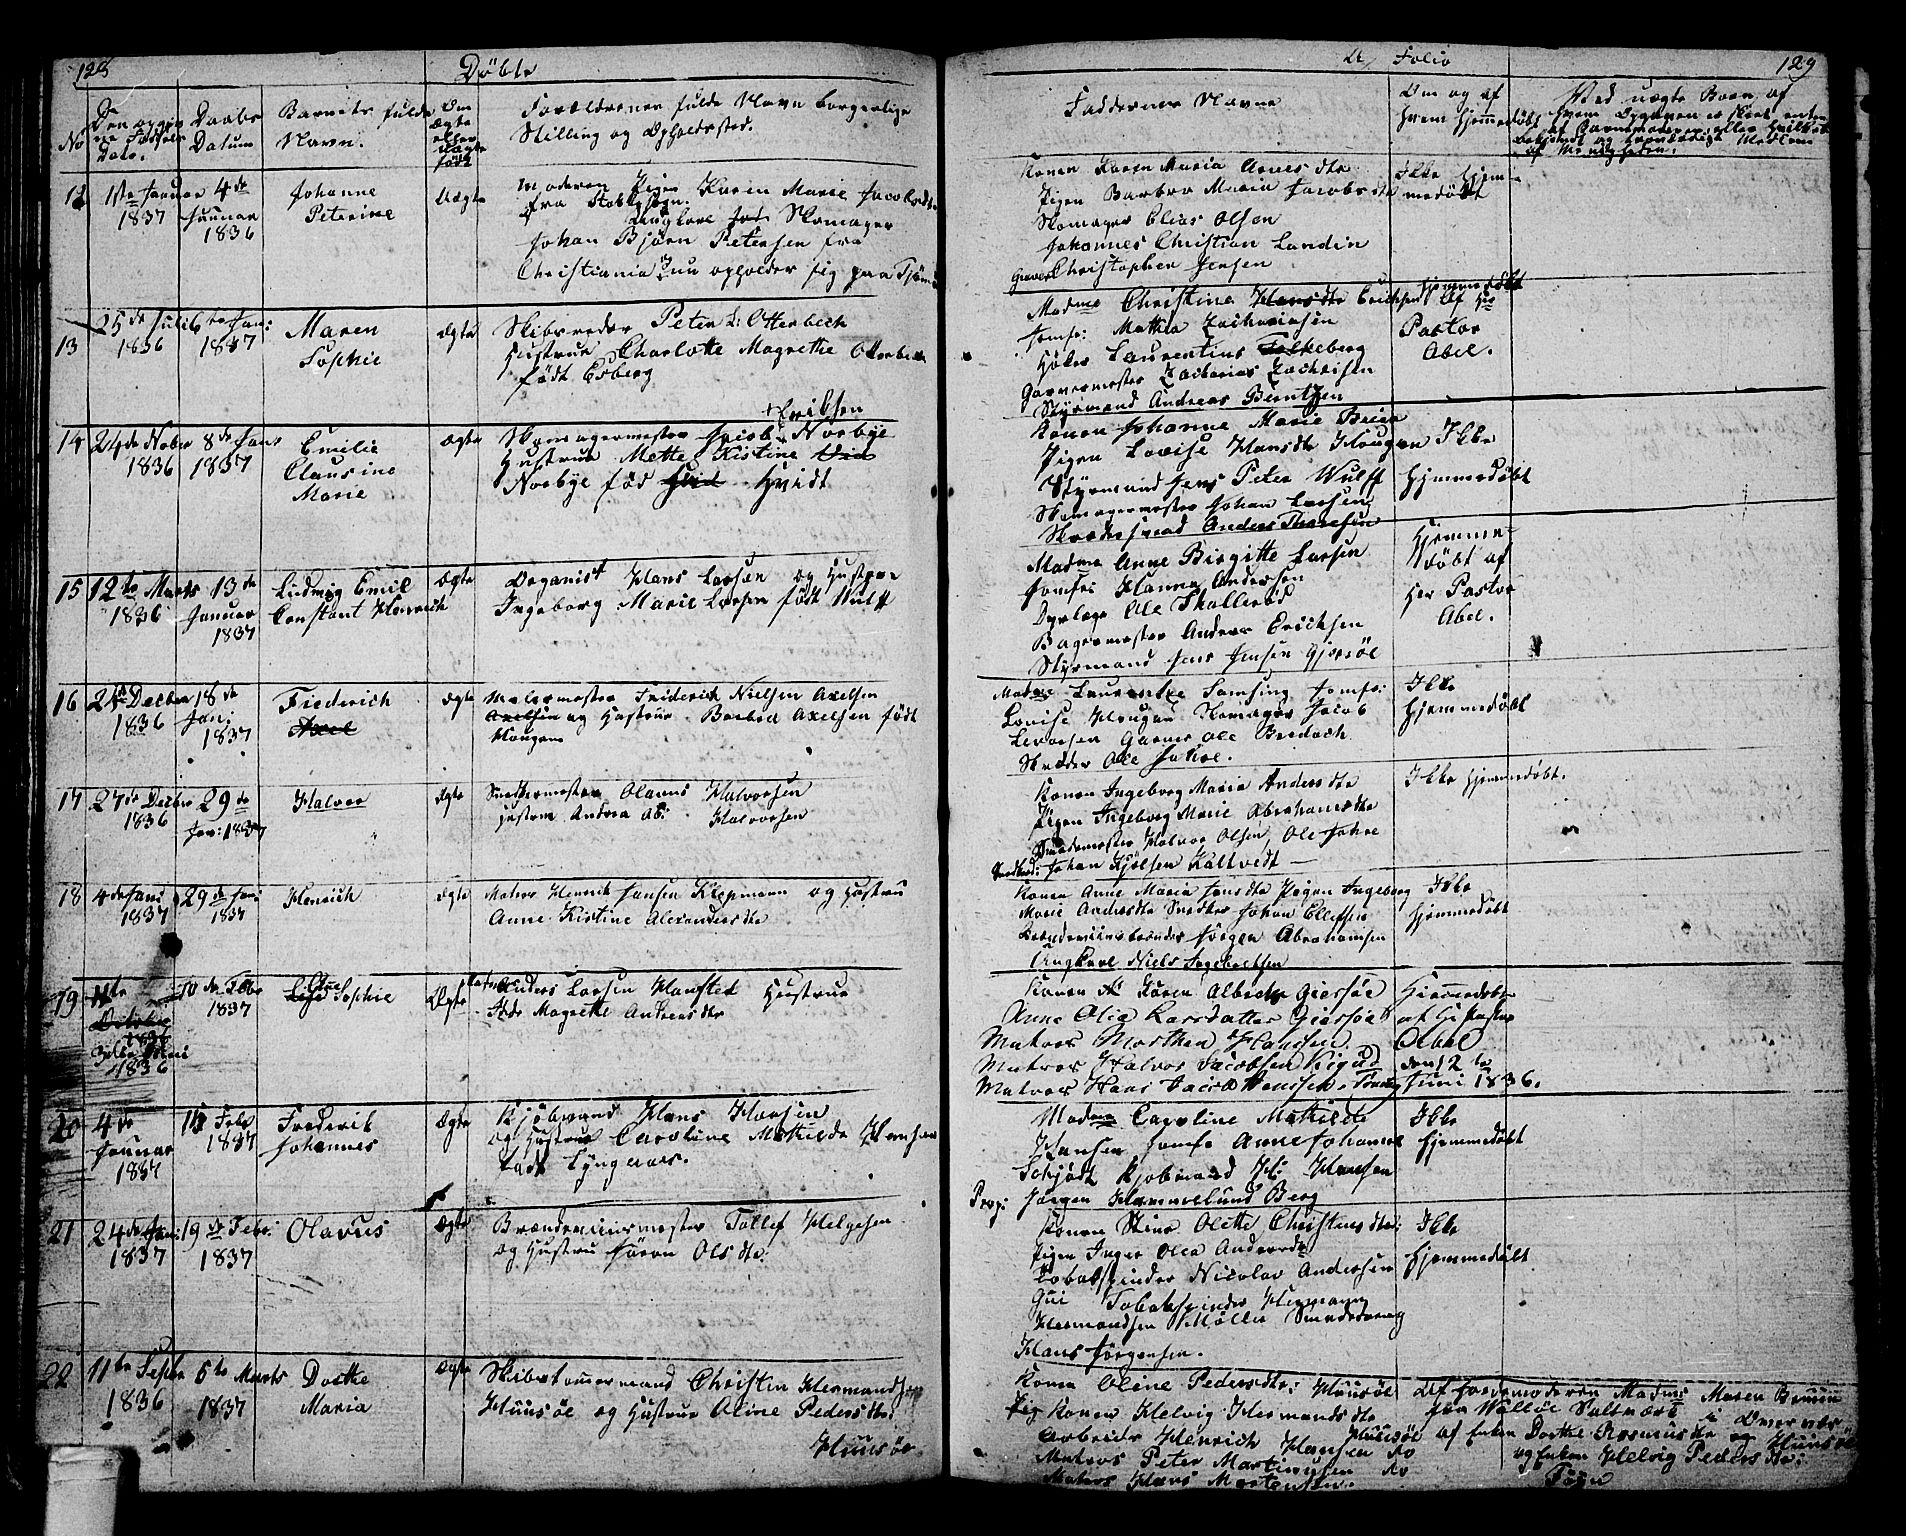 128
Døbte
No
Daabs
Datum
Barnets fulde
Navn.
Om
Ægte
eller
Uægte
født
Forældrenes fulde Navn borgerlige
Stilling og Opholdssted.
12
1ste Januar
1837
4de
Januar
1836
Johanne
Peterine
Uægte
Moderen Pigen Karen Marie Jacobsdtr
fra
Skomager
Johan Bjørn Petersen fra
Christiania nu opholder sig paa Tjømø
13
25de Juli
1836
6te Jan:
1837
Maren
Sophie
Ægte
Skibsreder Peter L: Otterbech
Hustrue Charlotte Magrethe Otterbech
født Esberg
14
24de Nobr
1836
8de Jan:
1837
Emilie
Clausine
Marie
Ægte
+ Eriksen
Skomagermester Jacob + Norbye
Hustrue Mette Kistine
Norbye fød Hvidt
15
12te Marts
1836
13de
Januar
1837
Ludvig Emil
Constant Henrich
Ægte
Organist Hans Larsen og Hustrue
Ingeborg Marie Larsen født Wulff
16
24de Decbr
1836
18de
Jan:
1837
Friederich
Axel
Ægte
Malermester Friderich Nielsen Axelsen
Axelsen og Hustrue Barbra Axelsen født
Hougan
17
27de Decbr
1836
29de
Jan: 1837
Halvor
Ægte
Snedkermester Olaus Halvorsen
Hustrue Andrea Ab: Halvorsen
18
4de Jani
1837
29de Jan:
1837
Henrich
Ægte
Matros Henrik Jansen Klepmann og Hustrue
Anne Kistine Alexandersdtr
19
11te
October
1836
1836
10de Febr
1837
Sophie
Ægte
Anders Larsen Hansted Hustrue
Magrethe Andreasdtr
20
4de
Januar
1837
Febr
1837
Frederik
Johannes
Ægte
Kjøbmand Hans Hansen
og Hustrue Caroline Mathilde Hansen
født Lyngaaes.
21
24de Jan:
1837
19de Febr:
1837
Olavus
Ægte
Brændeviinsmester Tollef Helgesen
og Hustru Søren Olsdtr.
22
11te Septbr
1836
5te Marts
1837
Dorthe
Maria
Ægte
Skibstømmermand Christen Hermandsen
Huusøe og Hustrue Oline Pedersdtr:
Huusøe
Folio
129
Faddernes Navne
Om og af
hvem hjemmedøbt
Ved uægte Børn af
Konen Karen Maria Arnesdtr
Pigen Barbra Maria Jacobsdtr
Skomager Elias Olsen
Johannes Christian Lundin
Christopher Jensen
Ikke Hjem-
medøbt
Madme Christine Hansdtr Erichsen
Jomfr: Mathea Zachariasen
Høker Laurentius Falkeberg
Garvermester Zacharias Zachrisen
Styrmand Andreas Berntzen
Hjemmedøbt
Af Hr
Pastor
Abel.
Konen Johanne Marie Beier
Pigen Lovise Hansdtr Hougan
Styrmand Jens Peter Wulff
Skomagermester Johan Larsen
Skræddersvend Anders Thoresen
Ikke
Hjemmedøbt
Madme Anne Birgitte Larsen
Jomfr Hanna Andersen
Dyrlæge Ole Thallerød
Bagermester Anders Erichsen
Styrmand Jens Jensen Gjersøe
Hjemme-
døbt af
Her Pastor
Abel.
Madme Laurentze Samsing Jomfr:
Lovise Hougan Skomager Jacob
Levorsen Garver Ole Bredoch
Skræder Ole Jahre.
Ikke
Hjemmedøbt
Konen Ingeborg Maria Andersdtr
Pigen Ingeborg Marie Abrahamsdtr
Halvor Olsen, Ole Jahre
Johan Kjølsen Kaltvedt
Ikke Hjemmedøbt.
Konen Anne Maria Jensdtr Pigen Ingeborg
Marie Andersdtr Snedker Johan Ellefsen
Brændeviinsbrænder Jørgen Abrahamsen
Ungkarl Niels Ingebretsen
Ikke
Hjemmedøbt
Konen Karen Albechs Giersøe
Anne Olia Larsdatter Giersøe
Matros Morthen Hanssen
Matros Halvor Jacobsen
Matros Hans Jacob
Hiemmedøbt
af
Abel
den 12te
Juni 1836.
Madme Caroline Mathilde
Hansen Jomfr Anne Johanne
Schjødt Kjøbmand H: Hansen
Prop: Jørgen Hammelund Berg
Ikke
Hjemmedøbt
Konen Stine Olette Christensdtr:
Pigen Inger Olea Andersdtr
Tobakspinder Nicolay Andersen
Gui Tobakspinder Hermann
Hermandsen Møller Smededreng
Hans Jørgensen.
Ikke
Hjemmedøbt
Konen Oline Pedersdtr: Huusøe
Konen Helvig Hermandsdtr
Arbeider Henrich Hansen do
Matros Peter Martinussen do
Matros Hans Mortensen.
Af Jordemoderen Madme Maren Bruun
fra Valløe Saltværk i Overvær
af Enken Dorthe Rasmusdtr og Huusøe
og Enken Helvig Pedersdtr: